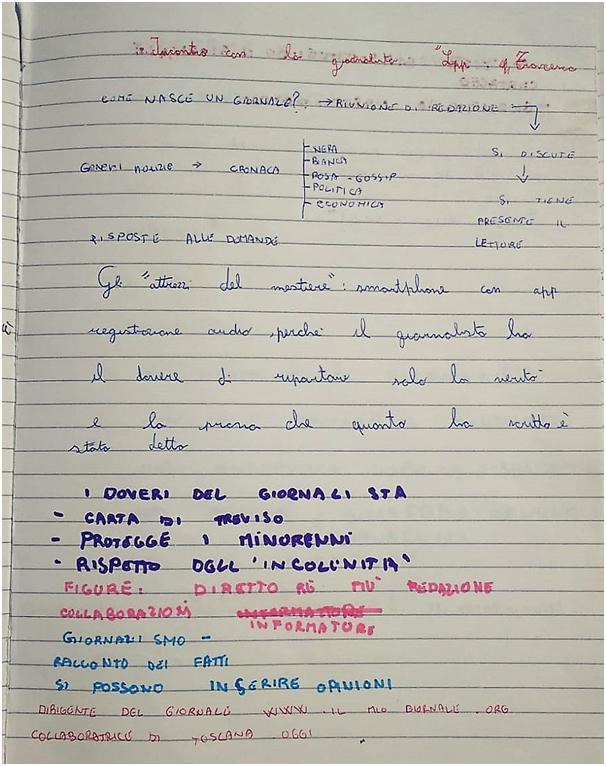 Incontro con la giornalista "Lpp : Francesca
COME NASCE UN GIORNALE? → RIUNIONE DI REDAZIONE →
SI DISCUTE
SI TIENE
PRESENTE IL
LETTORE
GENERI NOTIZIE → CRONACA
NERA
BIANCA
ROSA - GOSSIP
POLITICA
ECONOMICA
RISPOSTE ALLE DOMANDE
Gli "attrezzi del mestiere": smartphone con app
registrazione audio, perché il giornalista ha
il dovere di riportare solo la verità
e la prova che quanto ha scritto è
stato detto
I DOVERI DEL GIORNALISTA
- CARTA DI TREVISO
- PROTEGGE I MINORENNI
- RISPETTO DELL'INCOLUNITÀ
FIGURE: DIRETTORE PIÙ REDAZIONE
COLLABORAZIONI INFORMATORE
INFORMATORE
GIORNALISMO -
RACCONTO DEI FATTI
SI POSSONO INSERIRE OPINIONI
DIRIGENTE DEL GIORNALE WWW.IL MIO GIORNALE.ORG
COLLABORATRICE DI TOSCANA OGGI